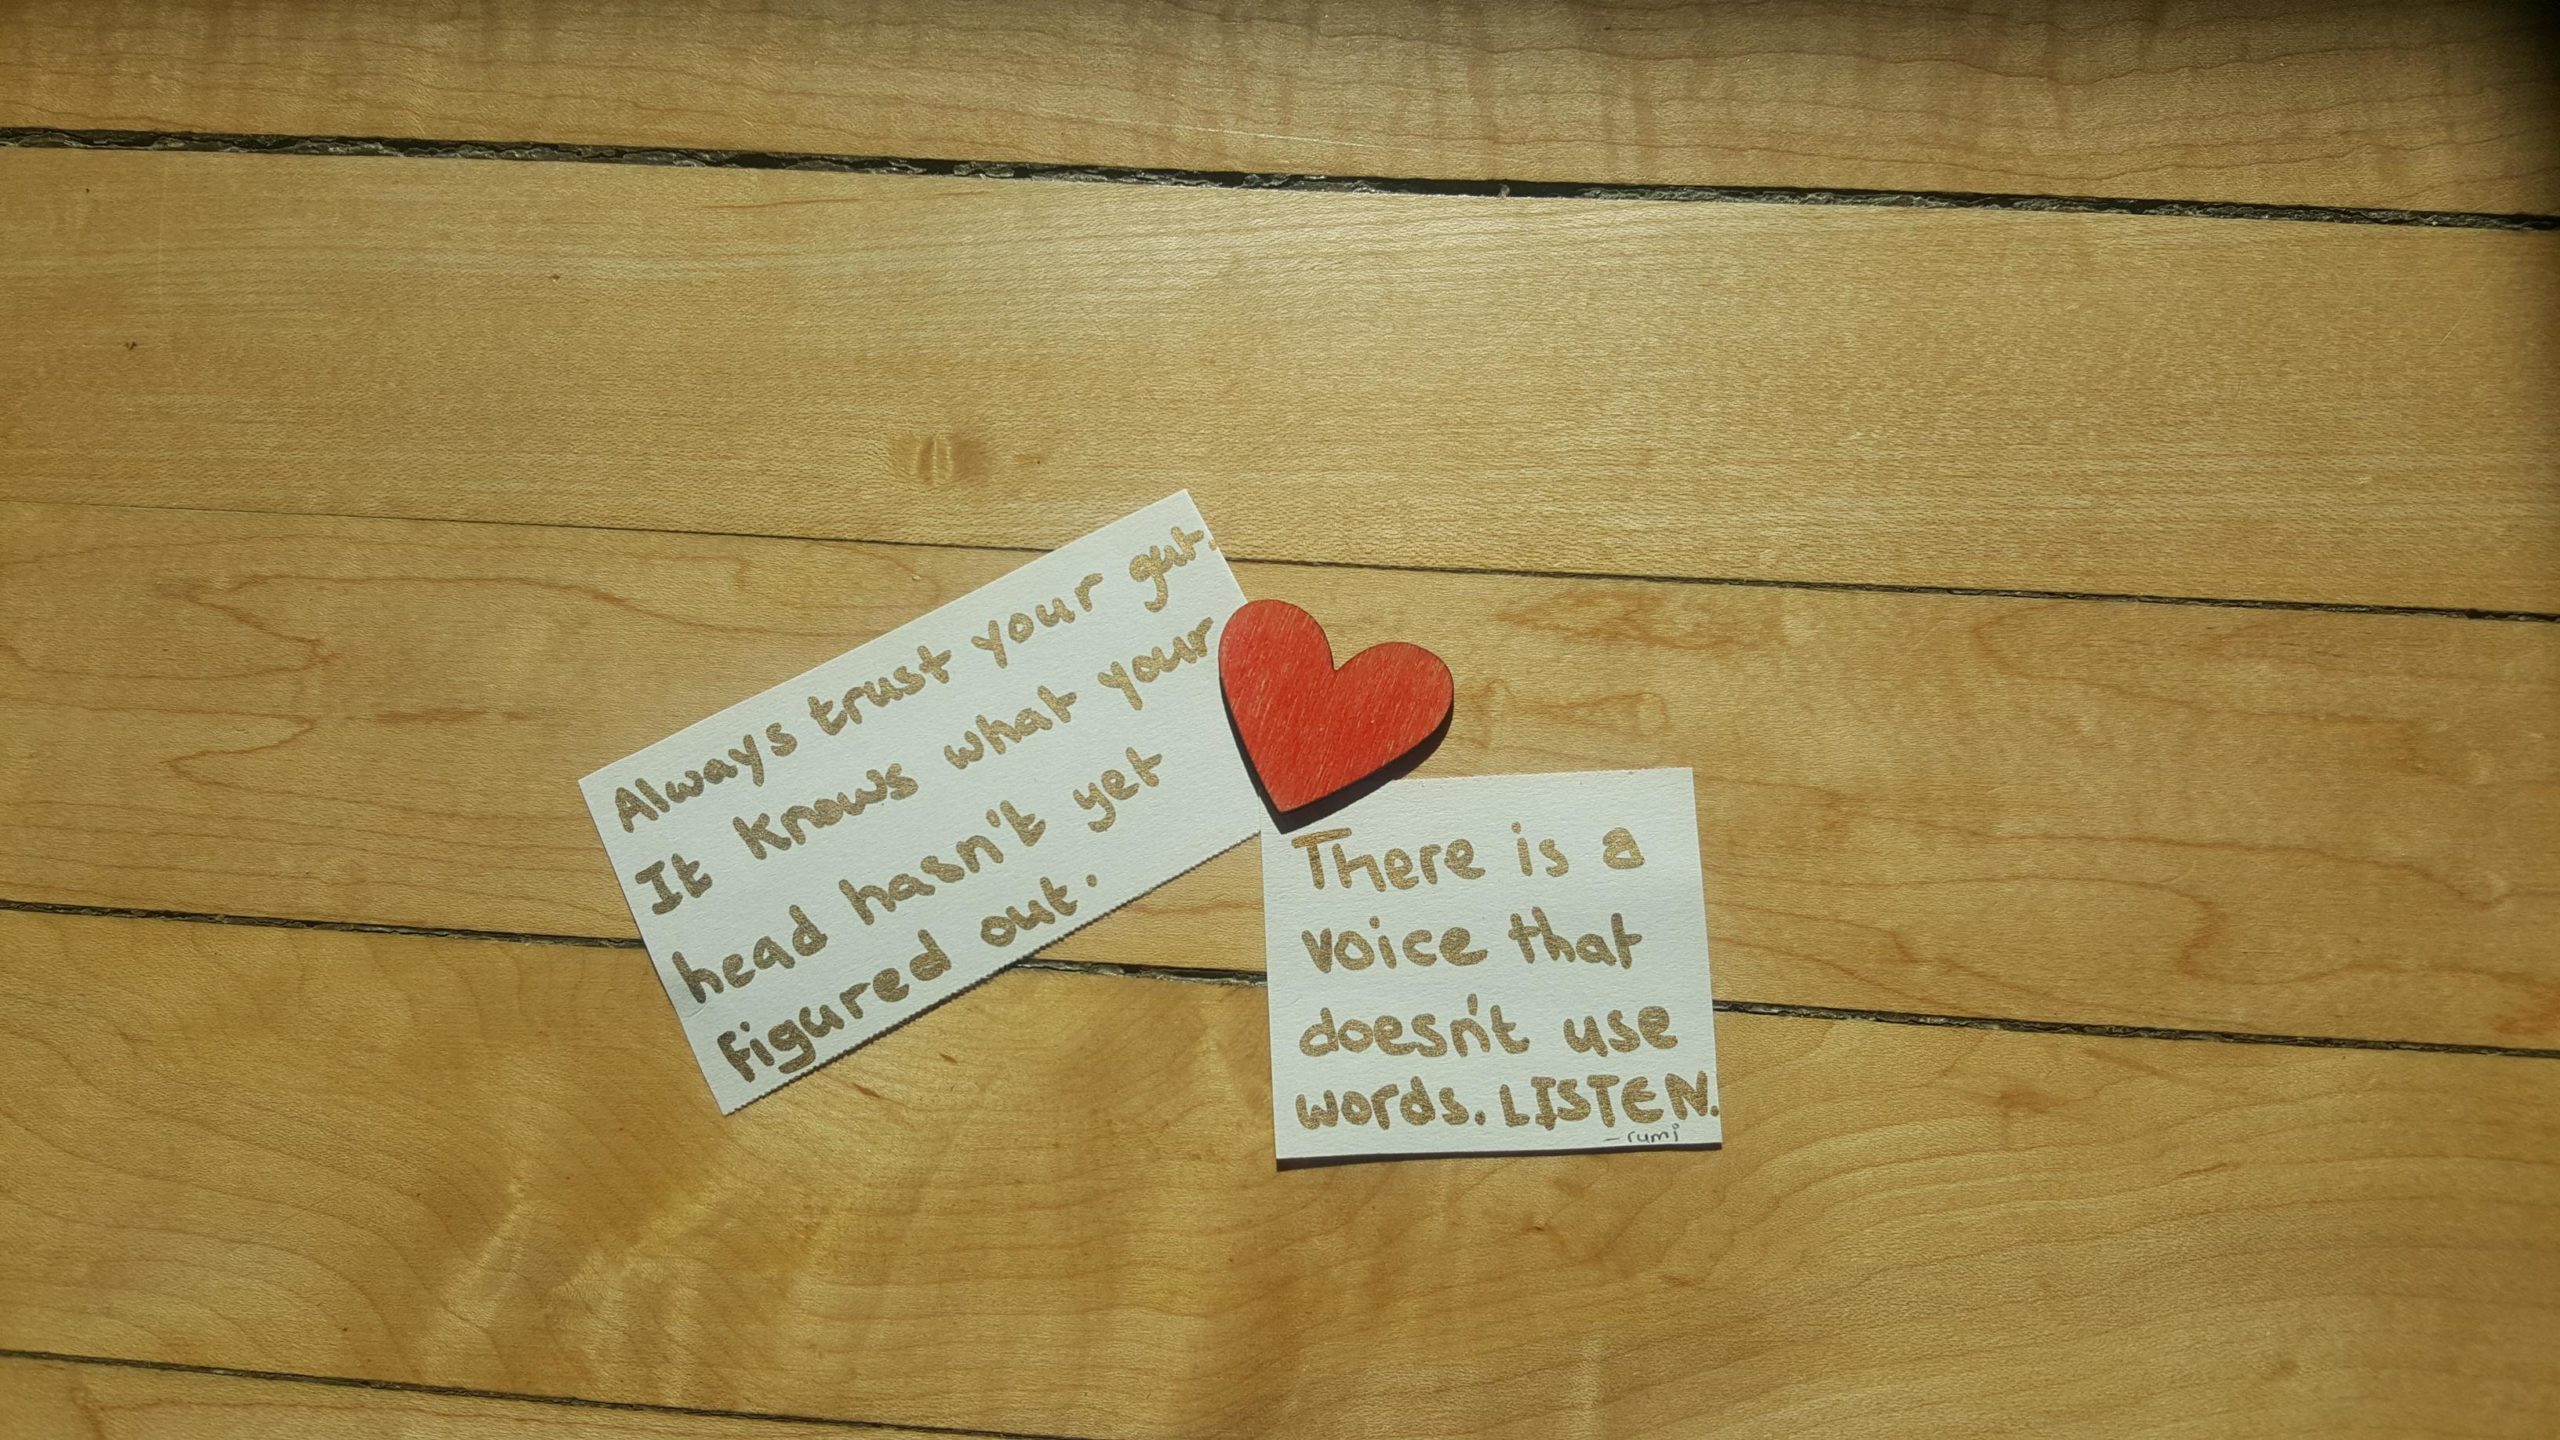 Always trust your gut.
It knows what your
head hasn't yet
figured out.
There is a
voice that
doesn't use
words. LISTEN.
- rumi